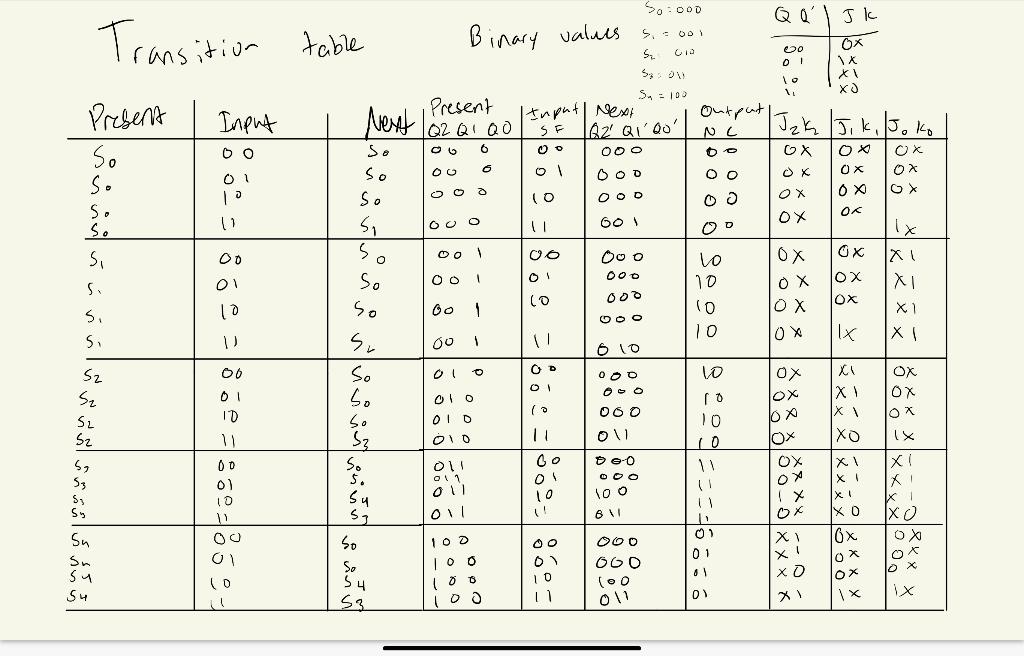 Transition table Binary values
S0 : 000
S1 = 001
S2: 010
S3: 011
S4 = 100
Q Q' J K
00 0X
01 1X
10 X1
11 X0
Present Input Next Present Input Next Output J2K2 J1K1 J0K0
Q2 Q1 Q0 S F Q2' Q1' Q0' N C
S0 00 S0 000 00 000 00 0X 0X 0X
S0 01 S0 00 0 01 000 00 0X 0X 0X
S0 10 S0 000 10 000 00 0X 0X 0X
S0 11 S1 000 11 001 00 0X 0X 1X
S1 00 S0 001 00 000 10 0X 0X X1
S1 01 S0 001 01 000 10 0X 0X X1
S1 10 S0 00 1 10 000 10 0X 0X X1
000
S1 11 S2 001 11 010 10 0X 1X X1
S2 00 S0 010 00 000 10 0X X1 0X
S2 01 S0 010 01 000 10 0X X1 0X
S2 10 S0 010 10 000 10 0X X1 0X
S2 11 S3 010 11 011 10 0X X0 1X
S3 00 S0 011 00 000 11 0X X1 X1
S3 01 S0 011 01 000 11 0X X1 X1
S3 10 S4 011 10 100 11 1X X1 X1
S3 11 S3 011 11 011 11 0X X0 X0
S4 00 S0 100 00 000 01 X1 0X 0X
S4 01 S0 100 01 000 01 X1 0X 0X
S4 10 S4 100 10 100 01 X0 0X 0X
S4 11 S3 100 11 011 01 X1 1X 1X